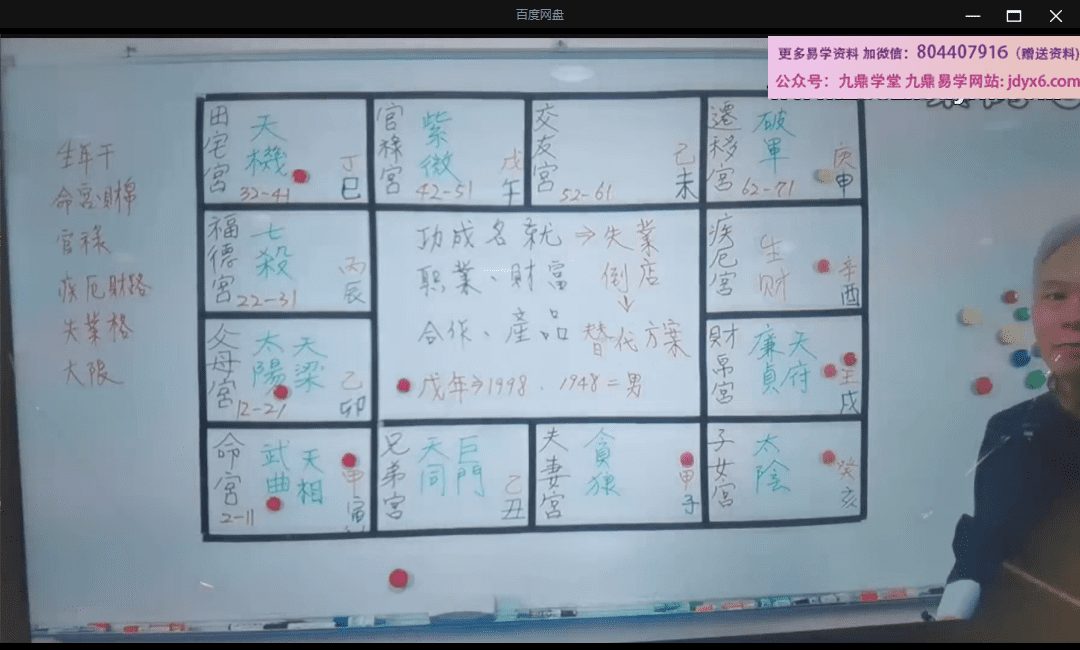 百度网盘
更多易学资料 加微信：804407916（赠送资料）
公众号：九鼎学堂 九鼎易学网站：jdyx6.com
生年干
命宫财帛
官禄
疾厄财路
失業格
大限
田宅宮 天機 丁巳 32-41
官禄宮 紫微 戊午 42-51
交友宮 己未 52-61
遷移宮 破軍 庚申 62-71
福德宮 七殺 丙辰 22-31
功成名就→失業
职業、財富 倒店
合作、產品 替代方案
戊年→1998、1948=男
疾厄宮 生财 辛酉
父母宮 太陽 天梁 乙卯 12-21
財帛宮 廉貞 天府 壬戌
命宮 武曲 天相 甲寅 2-11
兄弟宮 天同 巨門 乙丑
夫妻宮 貪狼 甲子
子女宮 太陰 癸亥